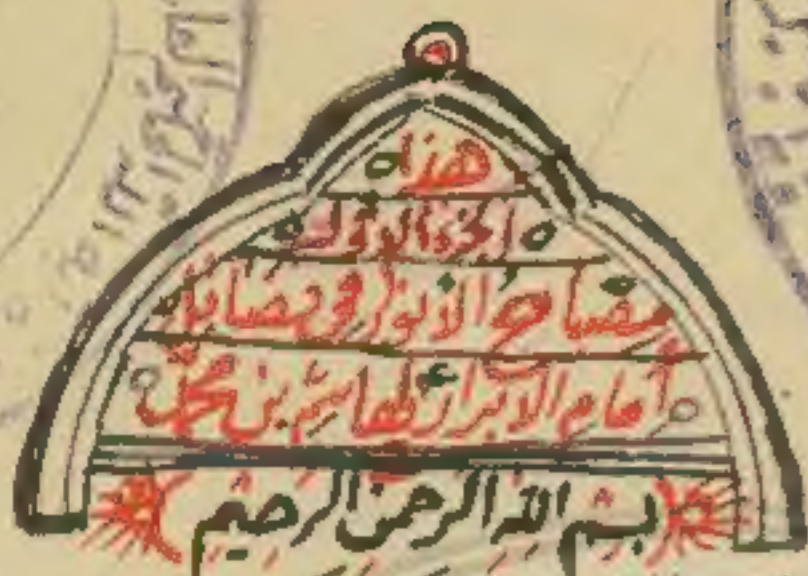 هذا
الجزء الأول
مصباح الأنوار في فضائل
إمام الأبرار لهاشم بن محمد
بسم الله الرحمن الرحيم